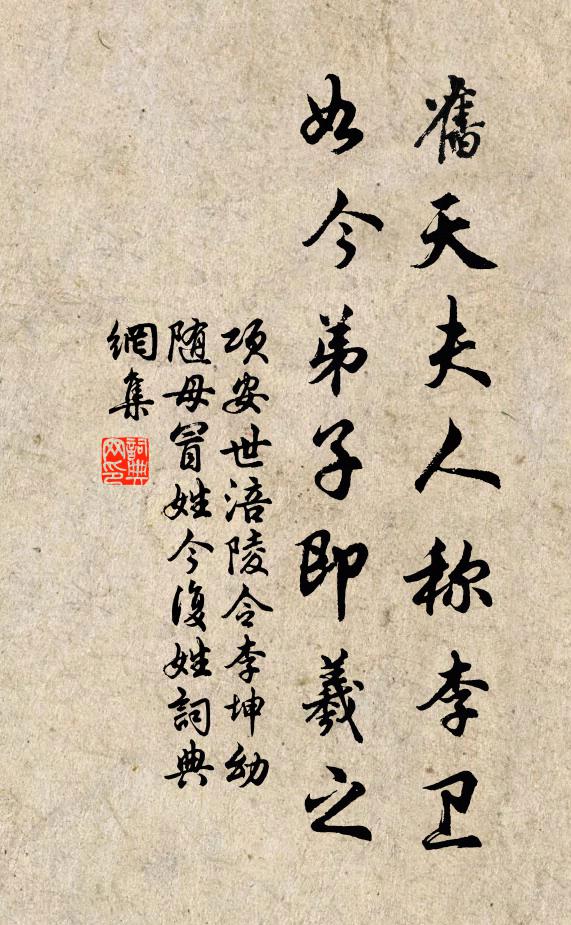 舊天夫人称李卫
如今弟子即羲之
项安世涪陵令李坤幼
随母冒姓今復姓詞典
網集
詞典網印